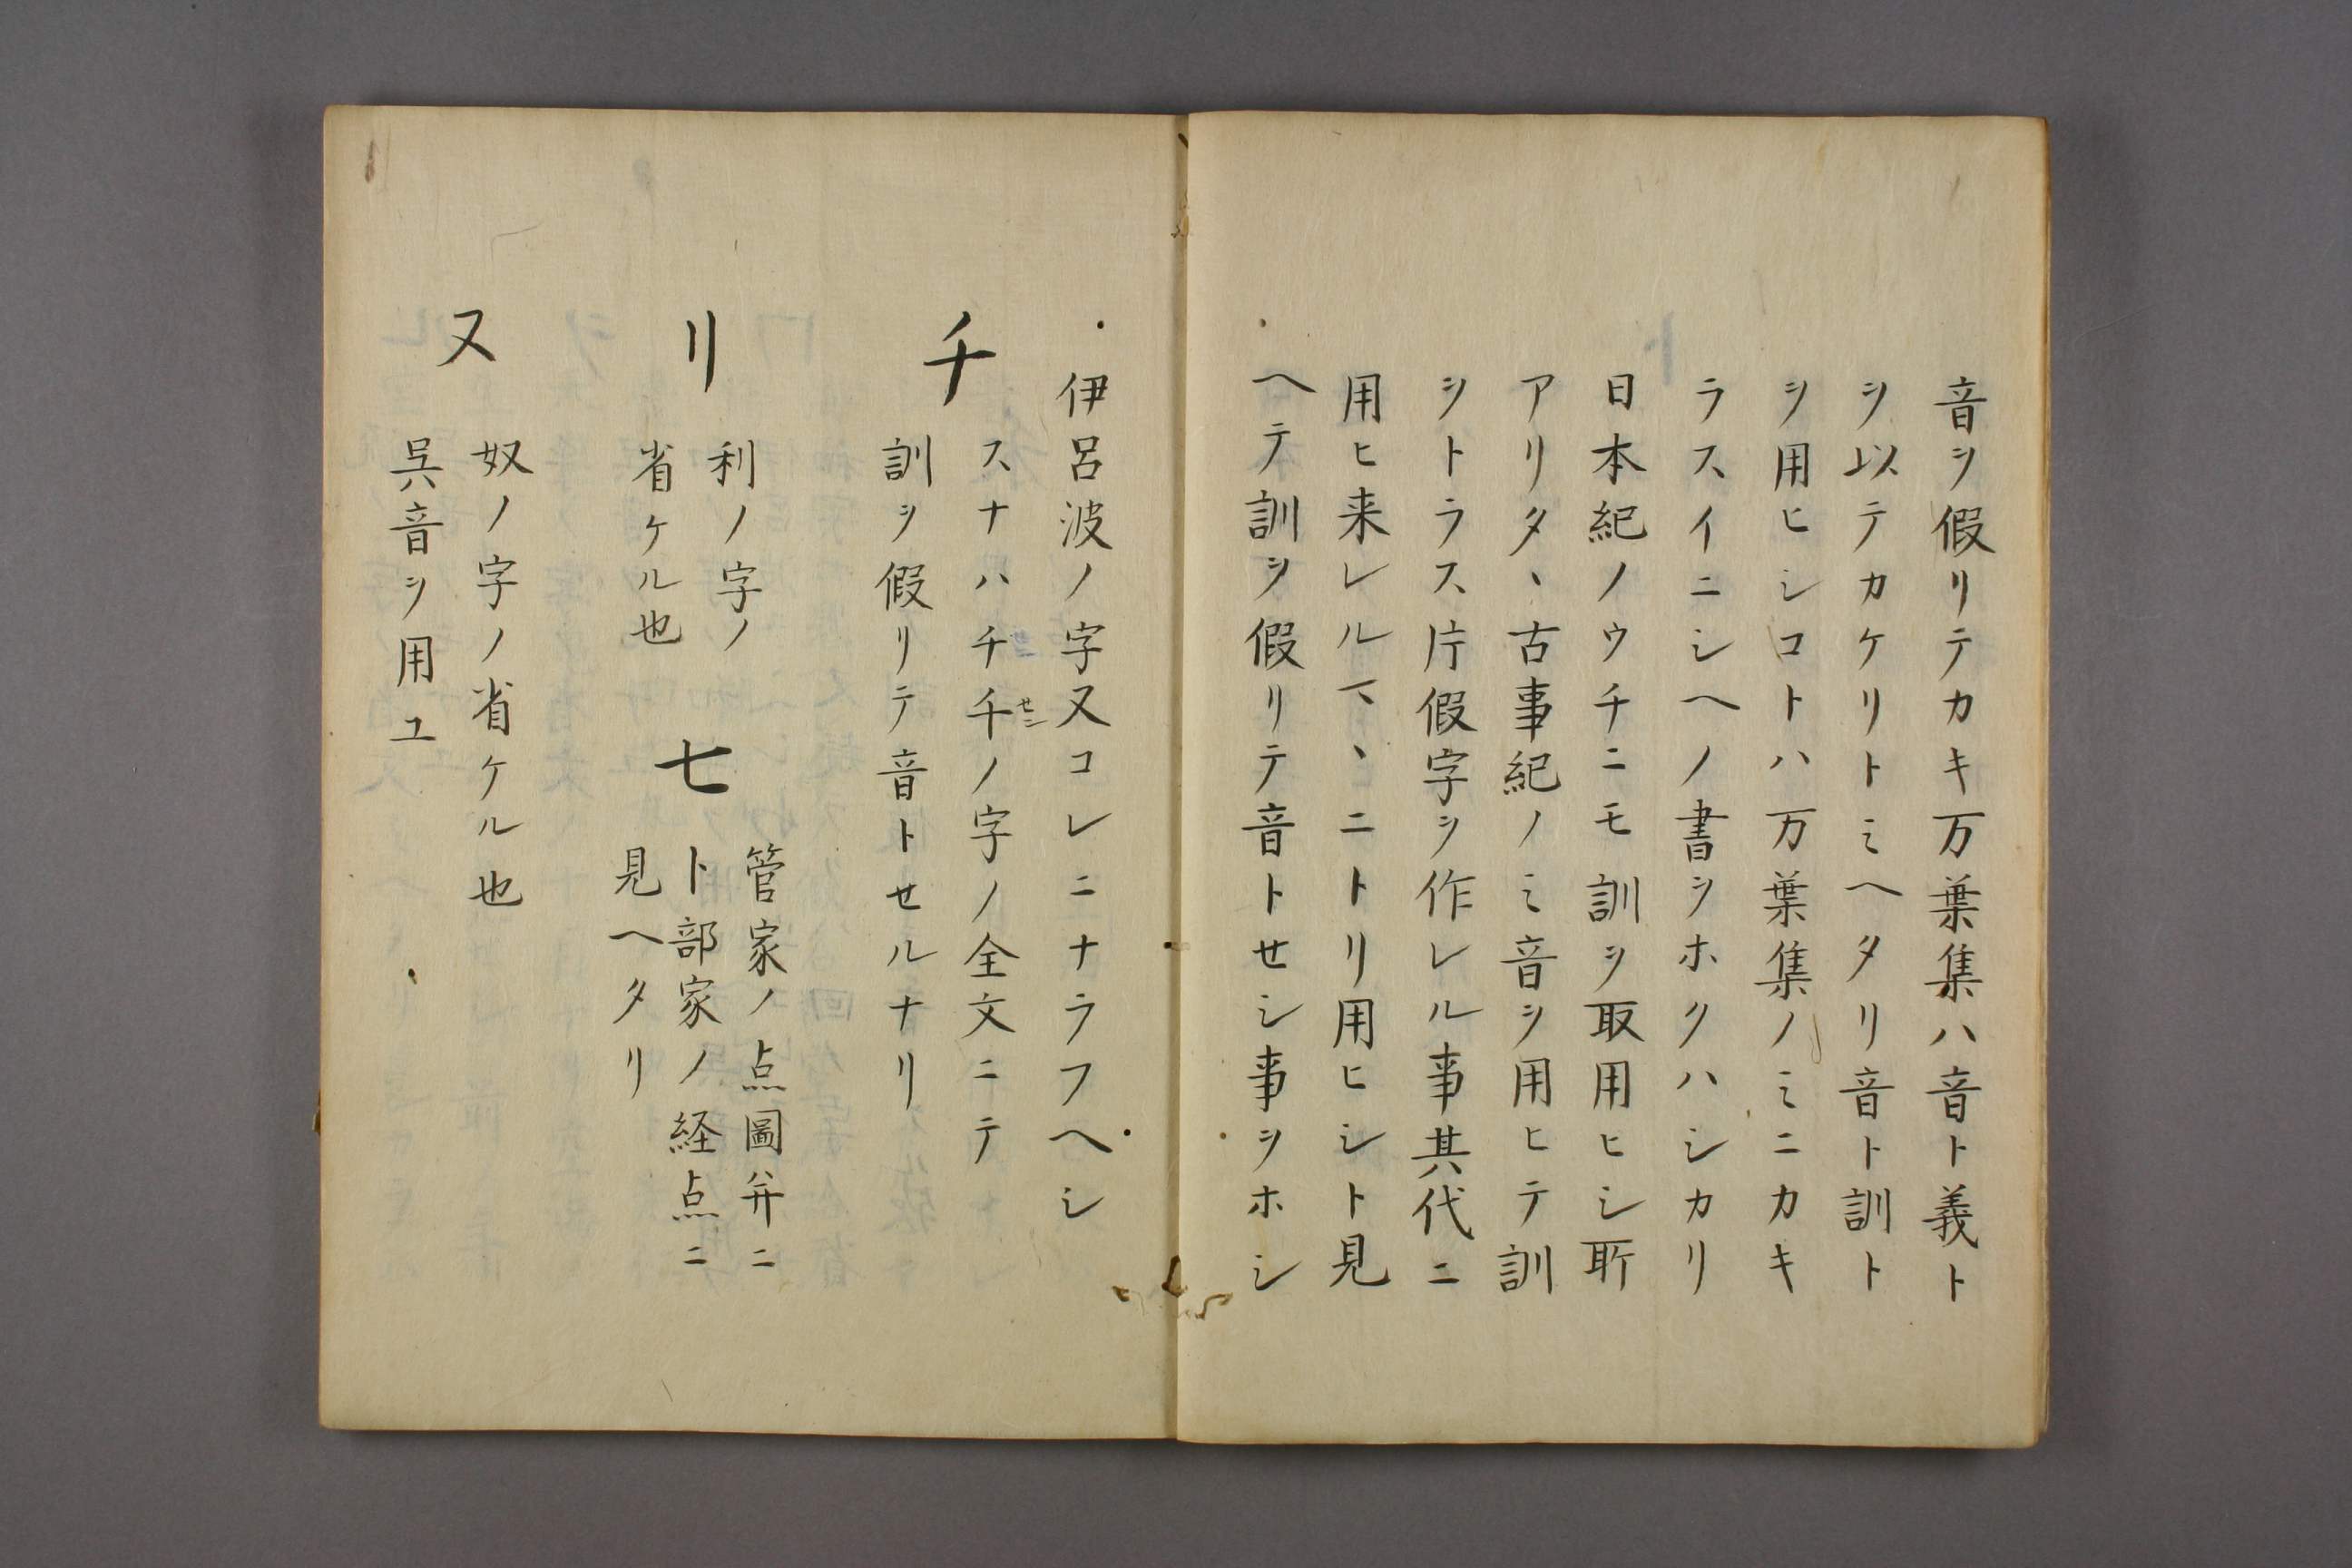 音ヲ假リテカキ万葉集ハ音ト義ト
ヲ以テカケリトミヘタリ音ト訓ト
ヲ用ヒシコトハ万葉集ノミニカキ
ラスイニシヘノ書ヲホクハシカリ
日本紀ノウチニモ訓ヲ取用ヒシ所
アリタヽ古事紀ノミ音ヲ用ヒテ訓
ヲトラス片假字ヲ作レル事其代ニ
用ヒ来レルマヽニトリ用ヒシト見
ヘテ訓ヲ假リテ音トセシ事ヲホシ
伊呂波ノ字又コレニナラフヘシ
チ
スナハチ千ノ字ノ全文ニテ
セン
訓ヲ假リテ音トセルナリ
リ
利ノ字ノ
省ケル也
七
管家ノ点圖并ニ
卜部家ノ経点ニ
見ヘタリ
ヌ
奴ノ字ノ省ケル也
呉音ヲ用ユ